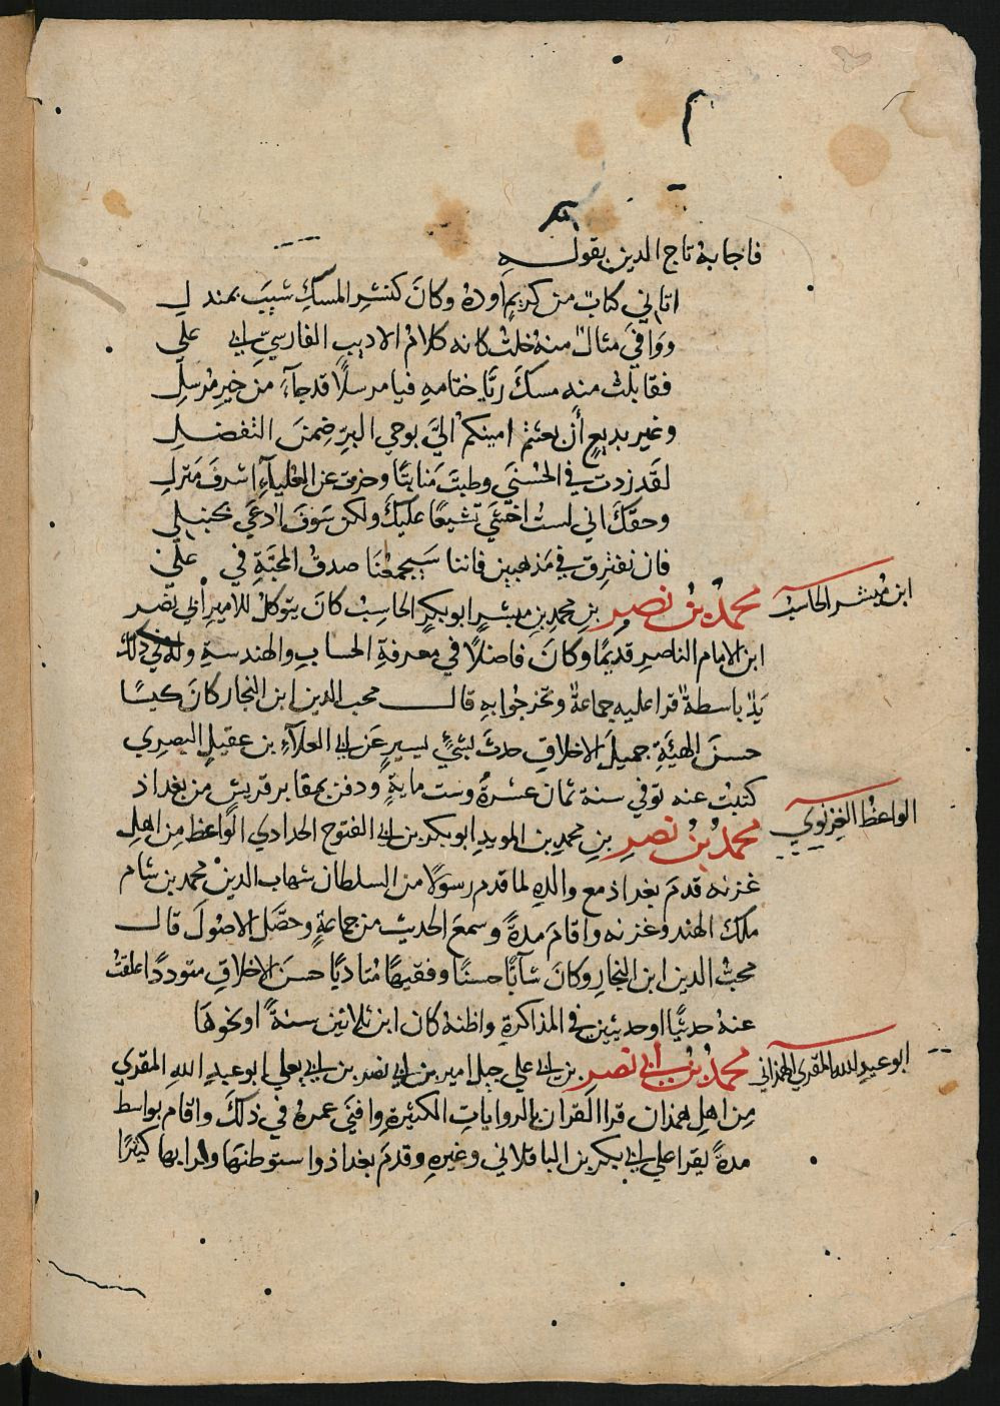 فاجابه تاج الدين بقوله
اتاني كتابٌ من كريمٍ اودهُ وكانَ كنشرِ المسكِ شيبَ بمندلِ
ووافَى مثالٌ منهُ خلتُ كانه كلامُ الاديبِ الفارسيِّ ابي علي
فقابلتُ منه مسكَ ريَّا ختامهِ فيا مرسلًا قد جاءَ من خيرِ مُرسلِ
وغير بديعٍ أن بعثتم امينكم اليَّ بوحي البرِّ ضمنَ التفضلِ
لقد زدت في الحُسنَى وطبتَ مَنابتًا وحزت عن العلياءِ اشرفَ مَنزلِ
وحقكَ اني لستُ اخشَى تشيعًا عليكَ ولكن سَوفَ ادعَى بحنبلي
فان نفترق في مَذهبين فاننا سَيجمعُنَا صدقُ المحبَّةِ في علي
ابن مُبشر الحاسبُ
محمدُ بنُ نصرِ بنِ محمدِ بنِ مبشرٍ ابو بكرٍ الحاسِبُ كانَ يتوكلُ للاميرِ أبي نصْر
ابن الامام الناصرِ قديمًا وكانَ فاضلًا في معرفةِ الحسابِ والهندسةِ وله في ذلك
يَدٌ باسطةٌ قرا عليه جماعةٌ وتخرجُوا بهِ قال محب الدين ابن النجار كانَ كيسًا
حسنَ الهيئةِ جميلَ الاخلاقِ حدثَ بشيءٍ يسيرٍ عَن ابي العلآءِ بن عقيلٍ البصري
كتبتُ عنه توفي سنة ثمان عشرةَ وست مايةٍ ودفن بمقابر قريش من بغداذ
الواعظُ الغزنوي
محمدُ بنُ نصرِ بنِ محمدِ بن المويدِ ابو بكر بن ابي الفتوح الحدادي الواعظ مِن اهلِ
غزنه قدمَ بغداذ مع والدهِ لما قدم رسولًا من السلطان شهاب الدين محمد بن سَام
ملك الهند وغزنه واقامَ مدةً وسمعَ الحديث من جماعةٍ وحصَّل الاصُولَ قال
محبُّ الدين ابن النجارِ وكانَ شآبًا حسنًا وفقيهًا مُتاديًا حسنَ الاخلاقِ متوددًا علقتُ
عنهُ حديثًا او حديثين في المذاكرةِ واظنهُ كان ابن ثلاثين سنةً او نحوهَا
ابو عبد الله المقري الهمذاني
محمدُ بنُ أبي نصرِ بن ابي علي جبل امير بن ابي نصر بن ابي يعلي ابو عبدِ اللهِ المقري
مِن اهلِ همذان قرا القران بالروايات الكثيرةِ وافنَى عمرهُ في ذلكَ واقام بواسط
مدةً يقرا علي ابي بكر بن الباقلاني وغيرهِ وقدمَ بغداذ واستوطنهَا واقرا بها كثيرًا